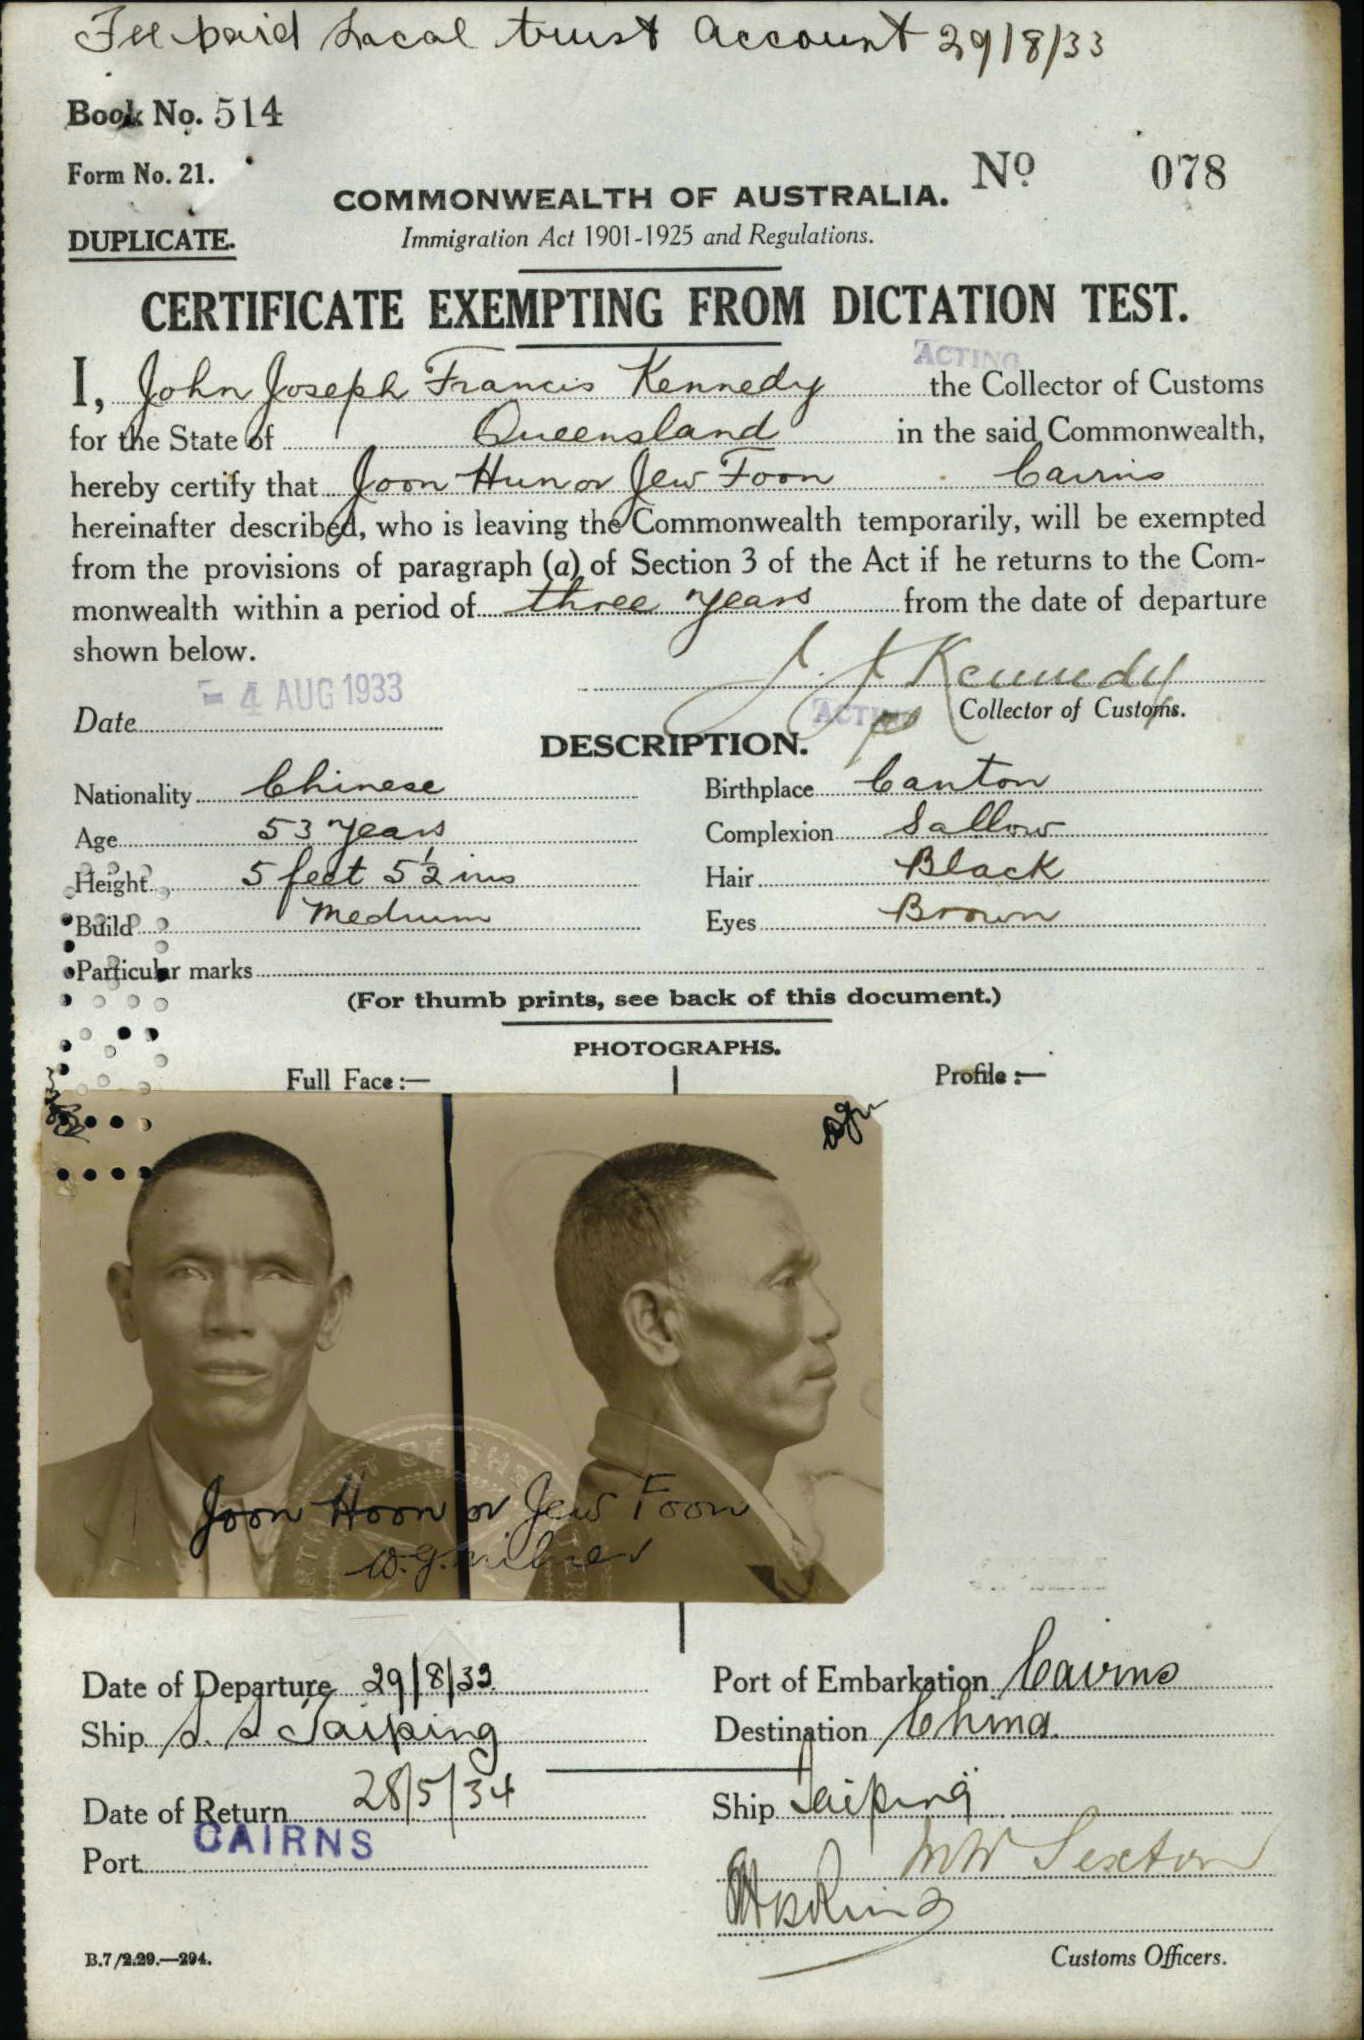 Fee paid Local trust Account 29/8/33
Book No. 514
Form No. 21.
No 078
COMMONWEALTH OF AUSTRALIA.
DUPLICATE.
Immigration Act 1901-1925 and Regulations.
CERTIFICATE EXEMPTING FROM DICTATION TEST.
ACTING
I, John Joseph Francis Kennedy the Collector of Customs
for the State of Queensland in the said Commonwealth,
hereby certify that Joon Hun or Jew Foon Cairns
hereinafter described, who is leaving the Commonwealth temporarily, will be exempted
from the provisions of paragraph (a) of Section 3 of the Act if he returns to the Com-
monwealth within a period of three years from the date of departure
shown below.
J. J. Kennedy
Date - 4 AUG 1933
ACTING Collector of Customs.
DESCRIPTION.
Nationality Chinese Birthplace Canton
Age 53 years Complexion Sallow
Height 5 feet 5½ ins Hair Black
Build Medium Eyes Brown
Particular marks
(For thumb prints, see back of this document.)
PHOTOGRAPHS.
Full Face :— Profile :—
Joon Hoon or Jew Foon
W.G. Milner
Date of Departure 29/8/33. Port of Embarkation Cairns
Ship S. S Taiping Destination China.
Date of Return 28/5/34 Ship Taiping
Port CAIRNS
MW Sexton
B.7/2.29.—294.
Customs Officers.